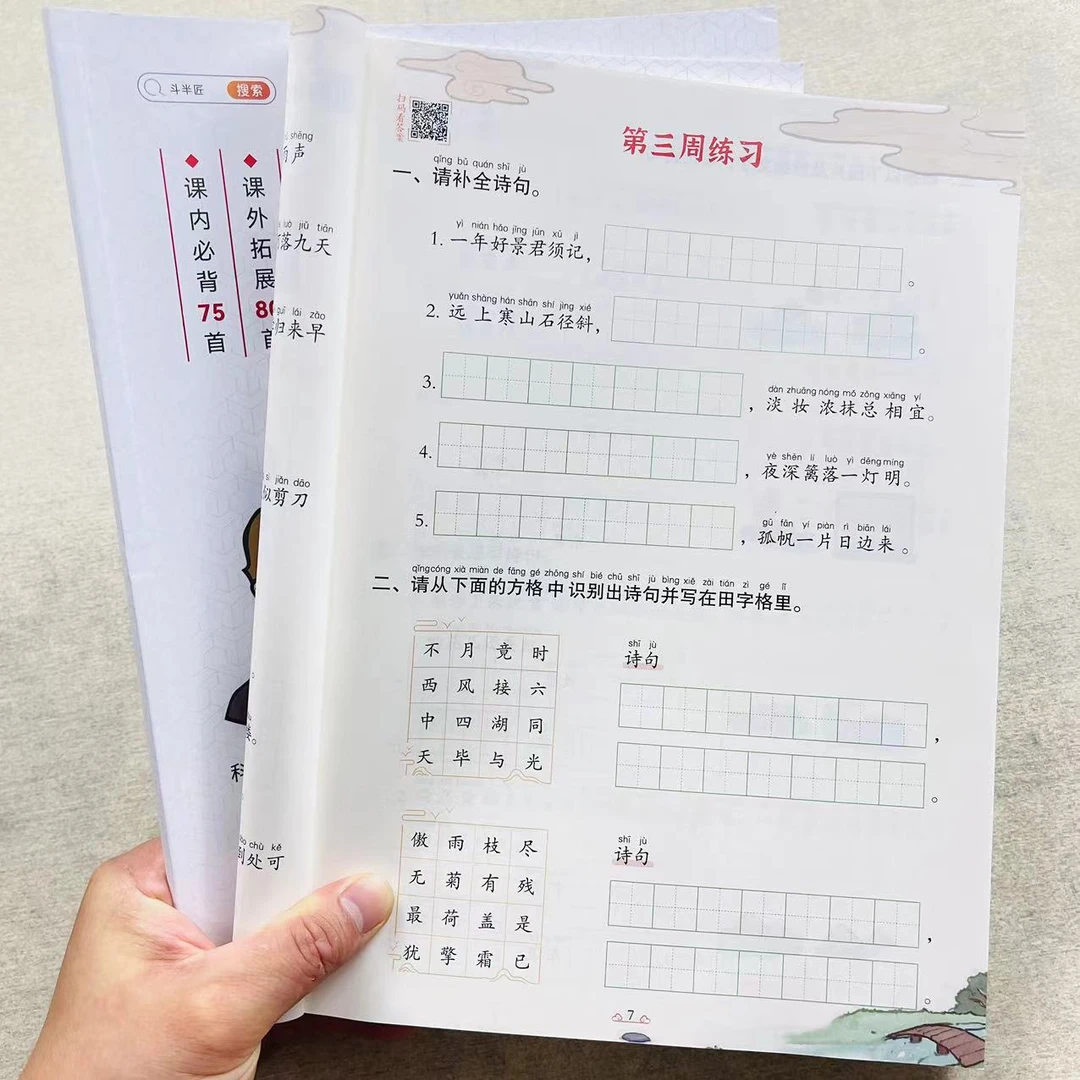 斗半匠 搜索
课内必背75首
课外拓展
shēng
声
luò jiǔ tiān
落九天
guī lái zǎo
归来早
sì jiǎn dāo
似剪刀
chù kě
到处可
扫码看答案
第三周练习
qǐng bǔ quán shī jù
一、请补全诗句。
yì nián hǎo jǐng jūn xū jì
1. 一年好景君须记，
。
yuǎn shàng hán shān shí jìng xié
2. 远上寒山石径斜，
。
dàn zhuāng nóng mǒ zǒng xiāng yí
3. ，淡妆浓抹总相宜。
yè shēn lí luò yì dēng míng
4. ，夜深篱落一灯明。
gū fān yí piàn rì biān lái
5. ，孤帆一片日边来。
qǐng cóng xià miàn de fāng gé zhōng shí bié chū shī jù bìng xiě zài tián zì gé lǐ
二、请从下面的方格中识别出诗句并写在田字格里。
不 月 竟 时
西 风 接 六
中 四 湖 同
天 毕 与 光
shī jù
诗句
，
。
傲 雨 枝 尽
无 菊 有 残
最 荷 盖 是
犹 擎 霜 已
shī jù
诗句
，
。
7